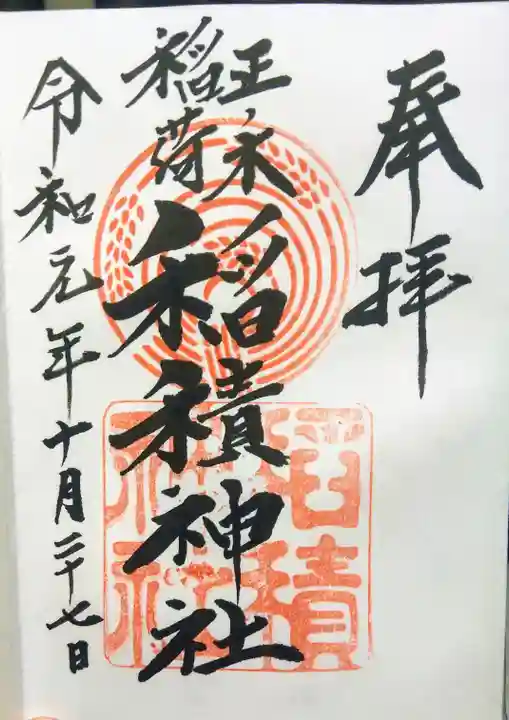 奉拝
正ノ木
稲荷
稲積神社
稲積
神社
令和元年十月二十七日